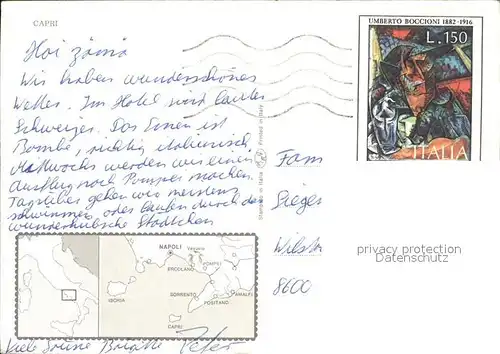 CAPRI
UMBERTO BOCCIONI 1882-1916
L.150
ITALIA
Hoi zäma
Wir haben wunderschönes
Wetter. Im Hotel sind lauter
Schweizer. Das Essen ist
Bombe, richtig italienisch.
Mittwochs werden wir einen
Ausflug nach Pompei machen.
Tagsüber gehen wir meistens
schwimmen oder laufen durch das
wunderhübsche Städtchen
Viele Grüsse Brigitte Peter
Stampato in Italia
Printed in Italy
Fam
Wilstr
8600
privacy protection
Datenschutz
NAPOLI
Vesuvio
ERCOLANO
POMPEI
ISCHIA
SORRENTO
AMALFI
POSITANO
CAPRI